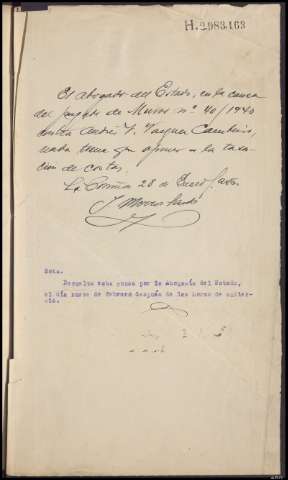 H.2983163
El abogado del Estado, en la causa
del Juzgado de Muros nº 40/1940
contra Andrés
nada tiene que oponer a la tasa-
cion de costas.
La Coruña 28 de Enero
Nota.
Devuelta esta causa por la Abogacía del Estado,
el día nueve de Febrero después de las horas de audien-
cia.